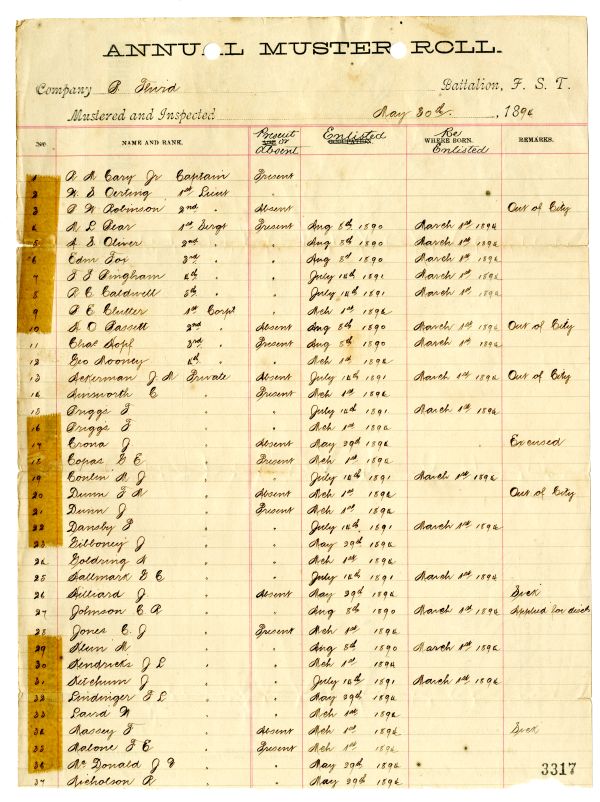 ANNUAL MUSTER ROLL.
Company B Third Battalion, F. S. T.
Mustered and Inspected May 30th. 1894
No. NAME AND RANK. Present or Absent Enlisted WHERE BORN. Re Enlisted REMARKS.
1 Cary Jr Captain Present
2 1st Lieut "
3 Robinson 2nd " Absent Out of City
4 1st Sergt Present Aug 8th 1890 March 1st 1894
5 Oliver 2nd " " Aug 8th 1890 March 1st 1894
6 Edm 3rd " " Aug 8th 1890 March 1st 1894
7 Bingham 4th " " July 14th 1891 March 1st 1894
8 R C Caldwell 5th " " July 14th 1891 March 1st 1894
9 Clutter 1st Corpl " Mch 1st 1894
10 Bassett 2nd " Absent Aug 8th 1890 March 1st 1894 Out of City
11 Chas Hopf 3rd " Present Aug 8th 1890 March 1st 1894
12 Geo Mooney 4th " " Mch 1st 1894
13 Ackerman J M Private Absent July 14th 1891 March 1st 1894 Out of City
14 Ainsworth C " Present Mch 1st 1894
15 Briggs " " July 14th 1891 March 1st 1894
16 Briggs " " Mch 1st 1894
17 Crona J " Absent May 29th 1894 Excused
18 Copas " Present Mch 1st 1894
19 Conlen M J " " July 14th 1891 March 1st 1894
20 Dunn " Absent Mch 1st 1894 Out of City
21 Dunn J " Present Mch 1st 1894
22 Dansby " " July 14th 1891 March 1st 1894
23 Gibboney J " " May 29th 1894
24 Goldring " " Mch 1st 1894
25 Hallmark " " July 14th 1891 March 1st 1894
26 Hilliard J " Absent May 29th 1894 Sick
27 Johnson C R " " Aug 8th 1890 March 1st 1894 Applied for disch
28 Jones C. J " Present Mch 1st 1894
29 Klein M " " Aug 8th 1890 March 1st 1894
30 Kendricks J L " " Mch 1st 1894
31 Ketchum J " " July 14th 1891 March 1st 1894
32 Lindinger F L " " May 29th 1894
33 Laird " " Mch 1st 1894
34 Massey F " Absent Mch 1st 1894 Sick
35 Malone F E " Present Mch 1st 1894
36 Mc Donald J " " May 29th 1894
37 Nicholson R " " May 29th 1894
3317